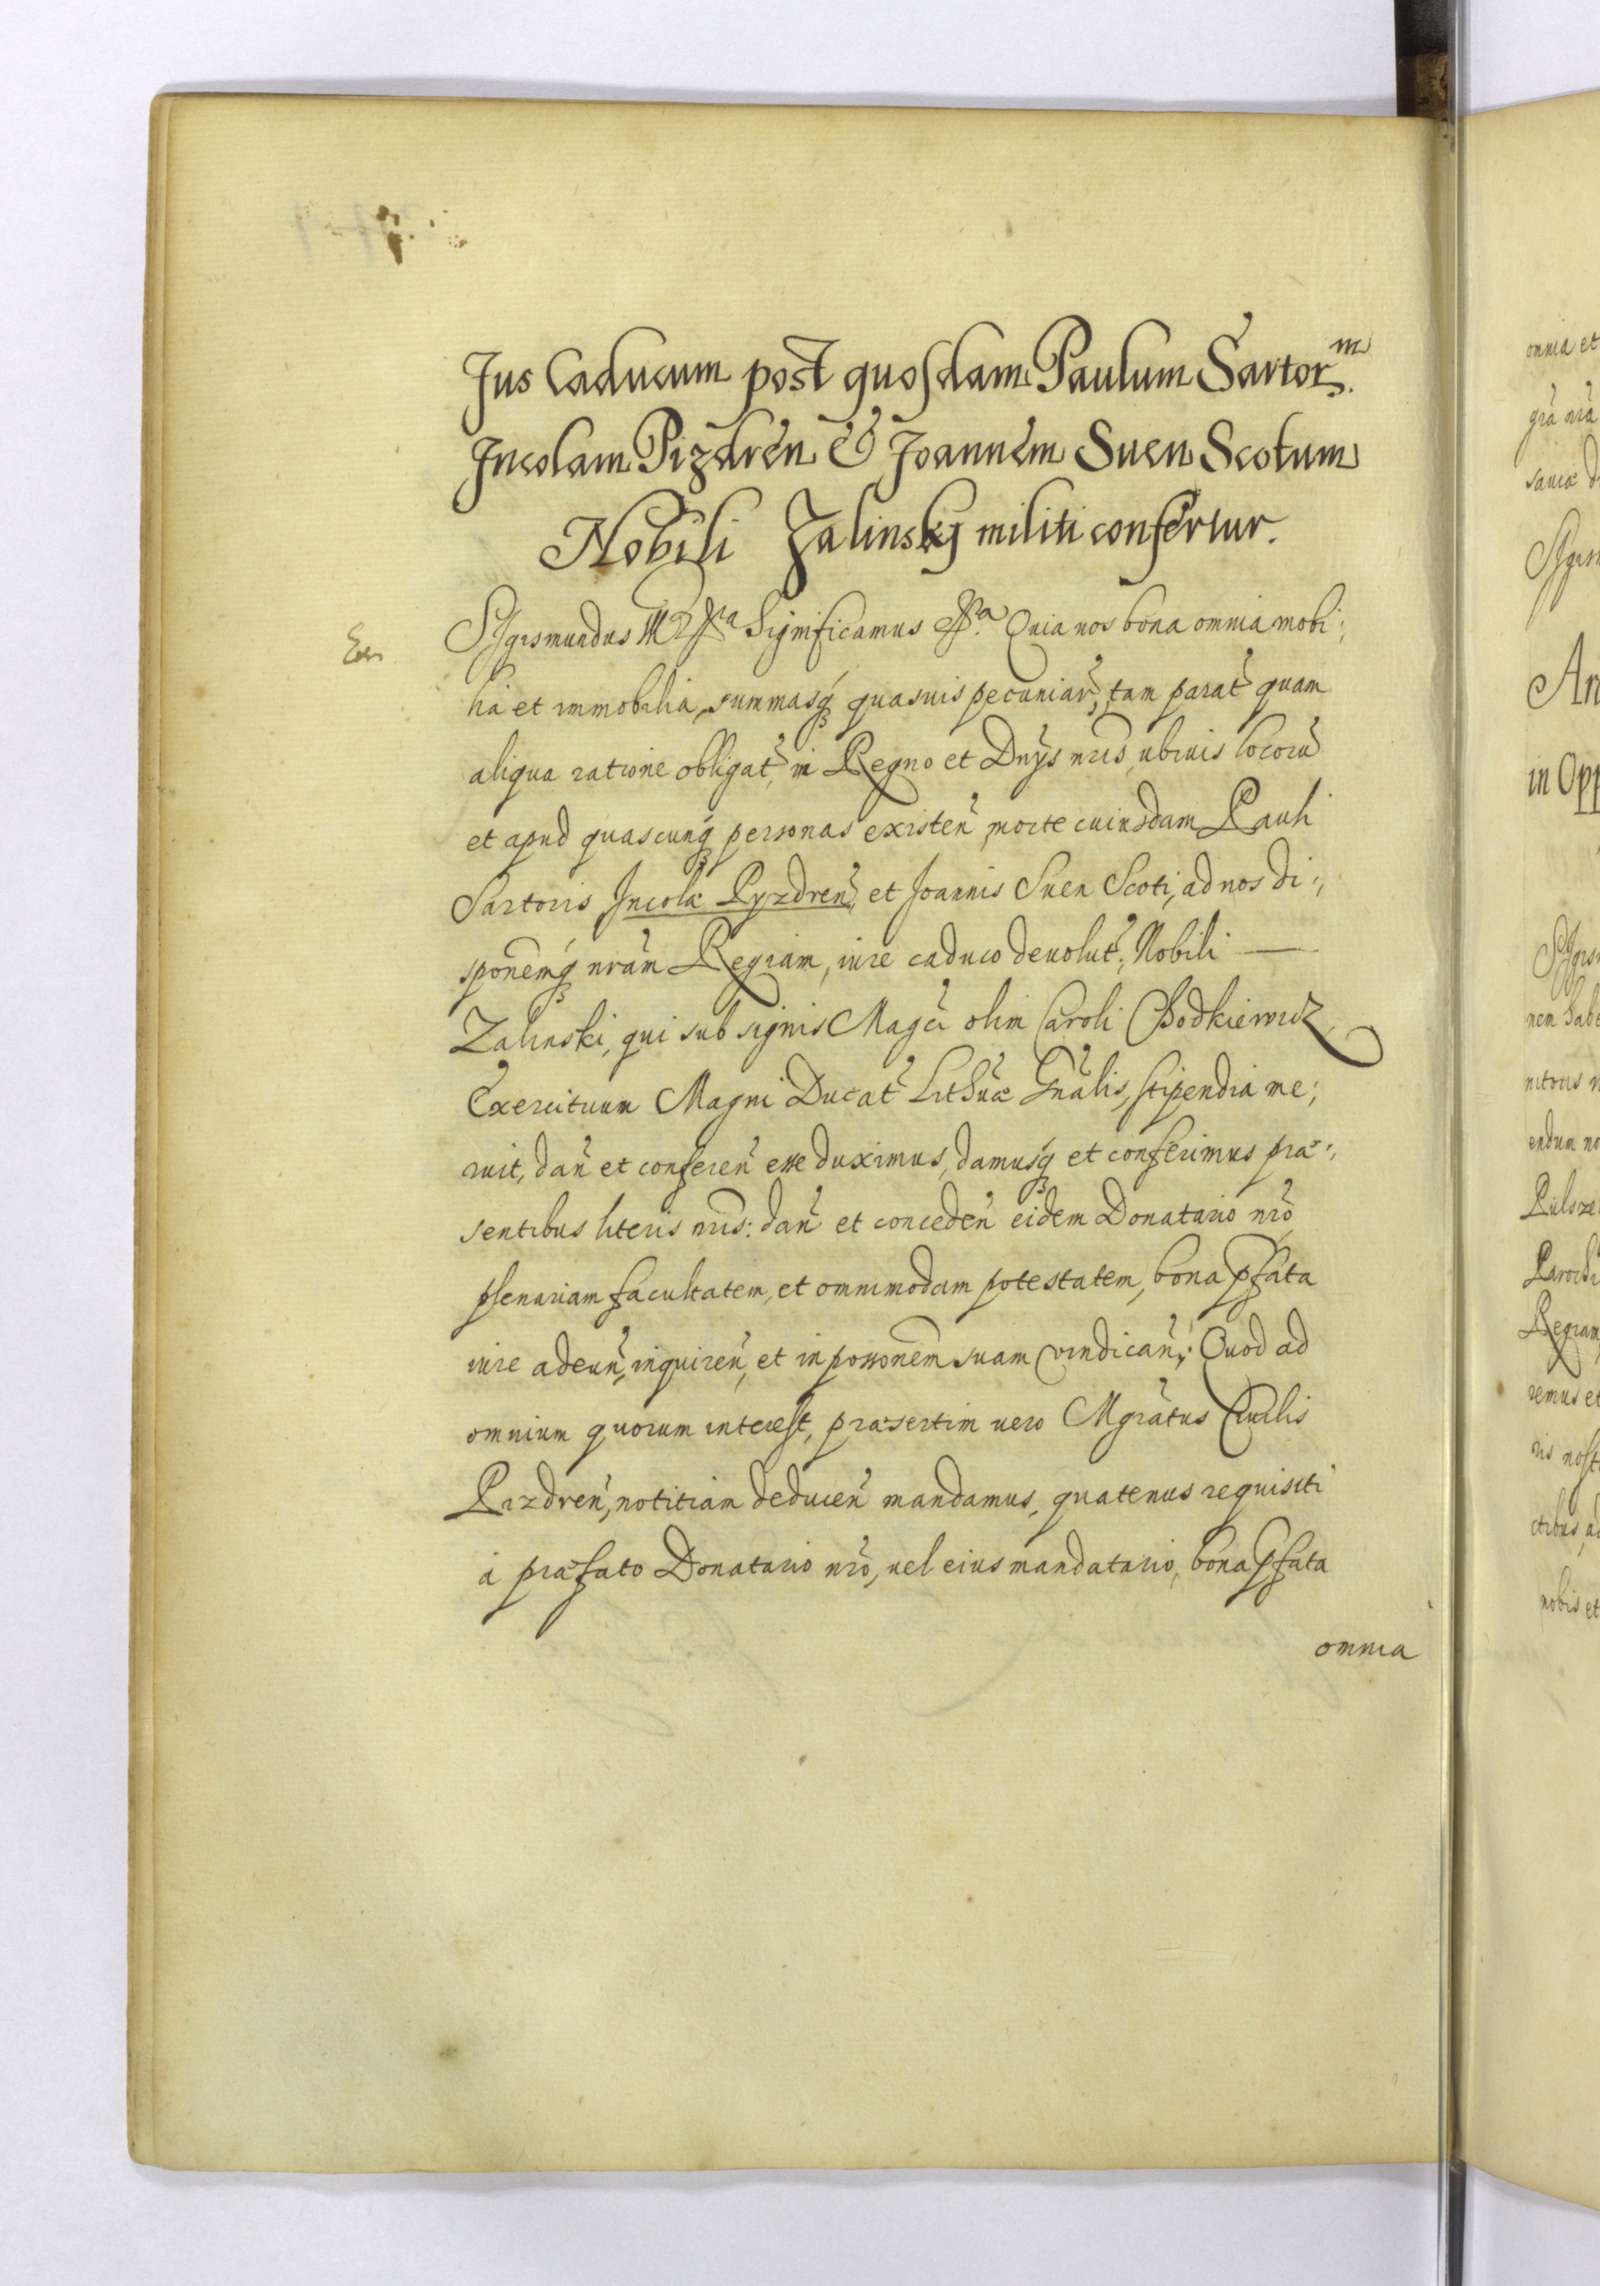 Jus Caducum post quosdam Paulum Sartor.m
Incolam Pizdren̄ & Joannem Suen Scotum
Nobili Zalinskÿ militi confertur.
Sigismundus III Significamus Quia nos bona omnia mobi:
lia et immobilia, summasq́ quasuis pecuniar̄, tam parat̄ quam
aliqua ratione obligat̄, in Regno et Dnÿs nr̄is, ubiuis locorū
et apud quascunq́ personas existen̄, morte cuiusdam Pauli
Sartoris Incolæ Pyzdren̄, et Joannis Suen Scoti, ad nos di:
spōnemq́ nr̄am Regiam, iure caduco deuolut̄, Nobili —
Zalinski, qui sub signis Maḡci olim Caroli Chodkiewicz
Exercituum Magni Ducat̄ Lithūæ Gn̄alis, stipendia me:
ruit, dan̄ et conferen̄ esse duximus, damusq́ et conferimus præ:
sentibus literis nr̄is: dan̄ et conceden̄ eidem Donatario nr̄o
plenariam facultatem, et omnimodam potestatem, bona pfata
iure adeun̄, inquiren̄, et in possōnem suam vindican̄; Quod ad
omnium quorum interest, præsertim uero Mgrātus Ciuilis
Pizdren̄, notitiam deducen̄ mandamus, quatenus requisiti
à præfato Donatario nr̄o, uel eius mandatario, bona pfata
omnia
omnia et
grā nrā
An
in Opp
nem habe
endum no
Regiam
remus et
ris nost
nobis et